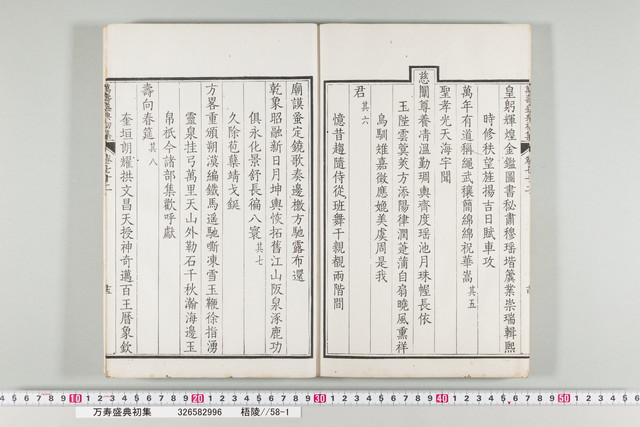 皇躬輝煌金鑑圖書秘肅穆瑶堦簴業崇瑞輯熙
時修秩望旌揚吉日賦車攻
萬年有道稱繩武穰簡綿綿祝華嵩其五
聖孝光天海宇聞
慈闈尊養凊溫勤琱輿齊度瑶池月珠幄長依
玉陛雲蓂莢方添陽律潤萐蒲自扇曉風熏祥
烏馴雉嘉徵應媲美虞周是我
君其六
憶昔趨隨侍從班舞干親覩兩階間
廟謨蚤定鐃歌奏邊檄方馳露布還
乾象昭融新日月坤輿恢拓舊江山阪泉涿鹿功
俱永化景舒長徧八寰其七
久除苞蘖靖戈鋋
方畧重頒朔漠編鐵馬遥馳嘶凍雪玉鞭徐指湧
靈泉挂弓萬里天山外勒石千秋瀚海邊玉
帛祇今諸部集歡呼獻
壽向春筵其八
奎垣朗耀拱文昌天授神奇邁百王曆象欽
万寿盛典初集 326582996 梧陵//58-1
10 20 30 40 50